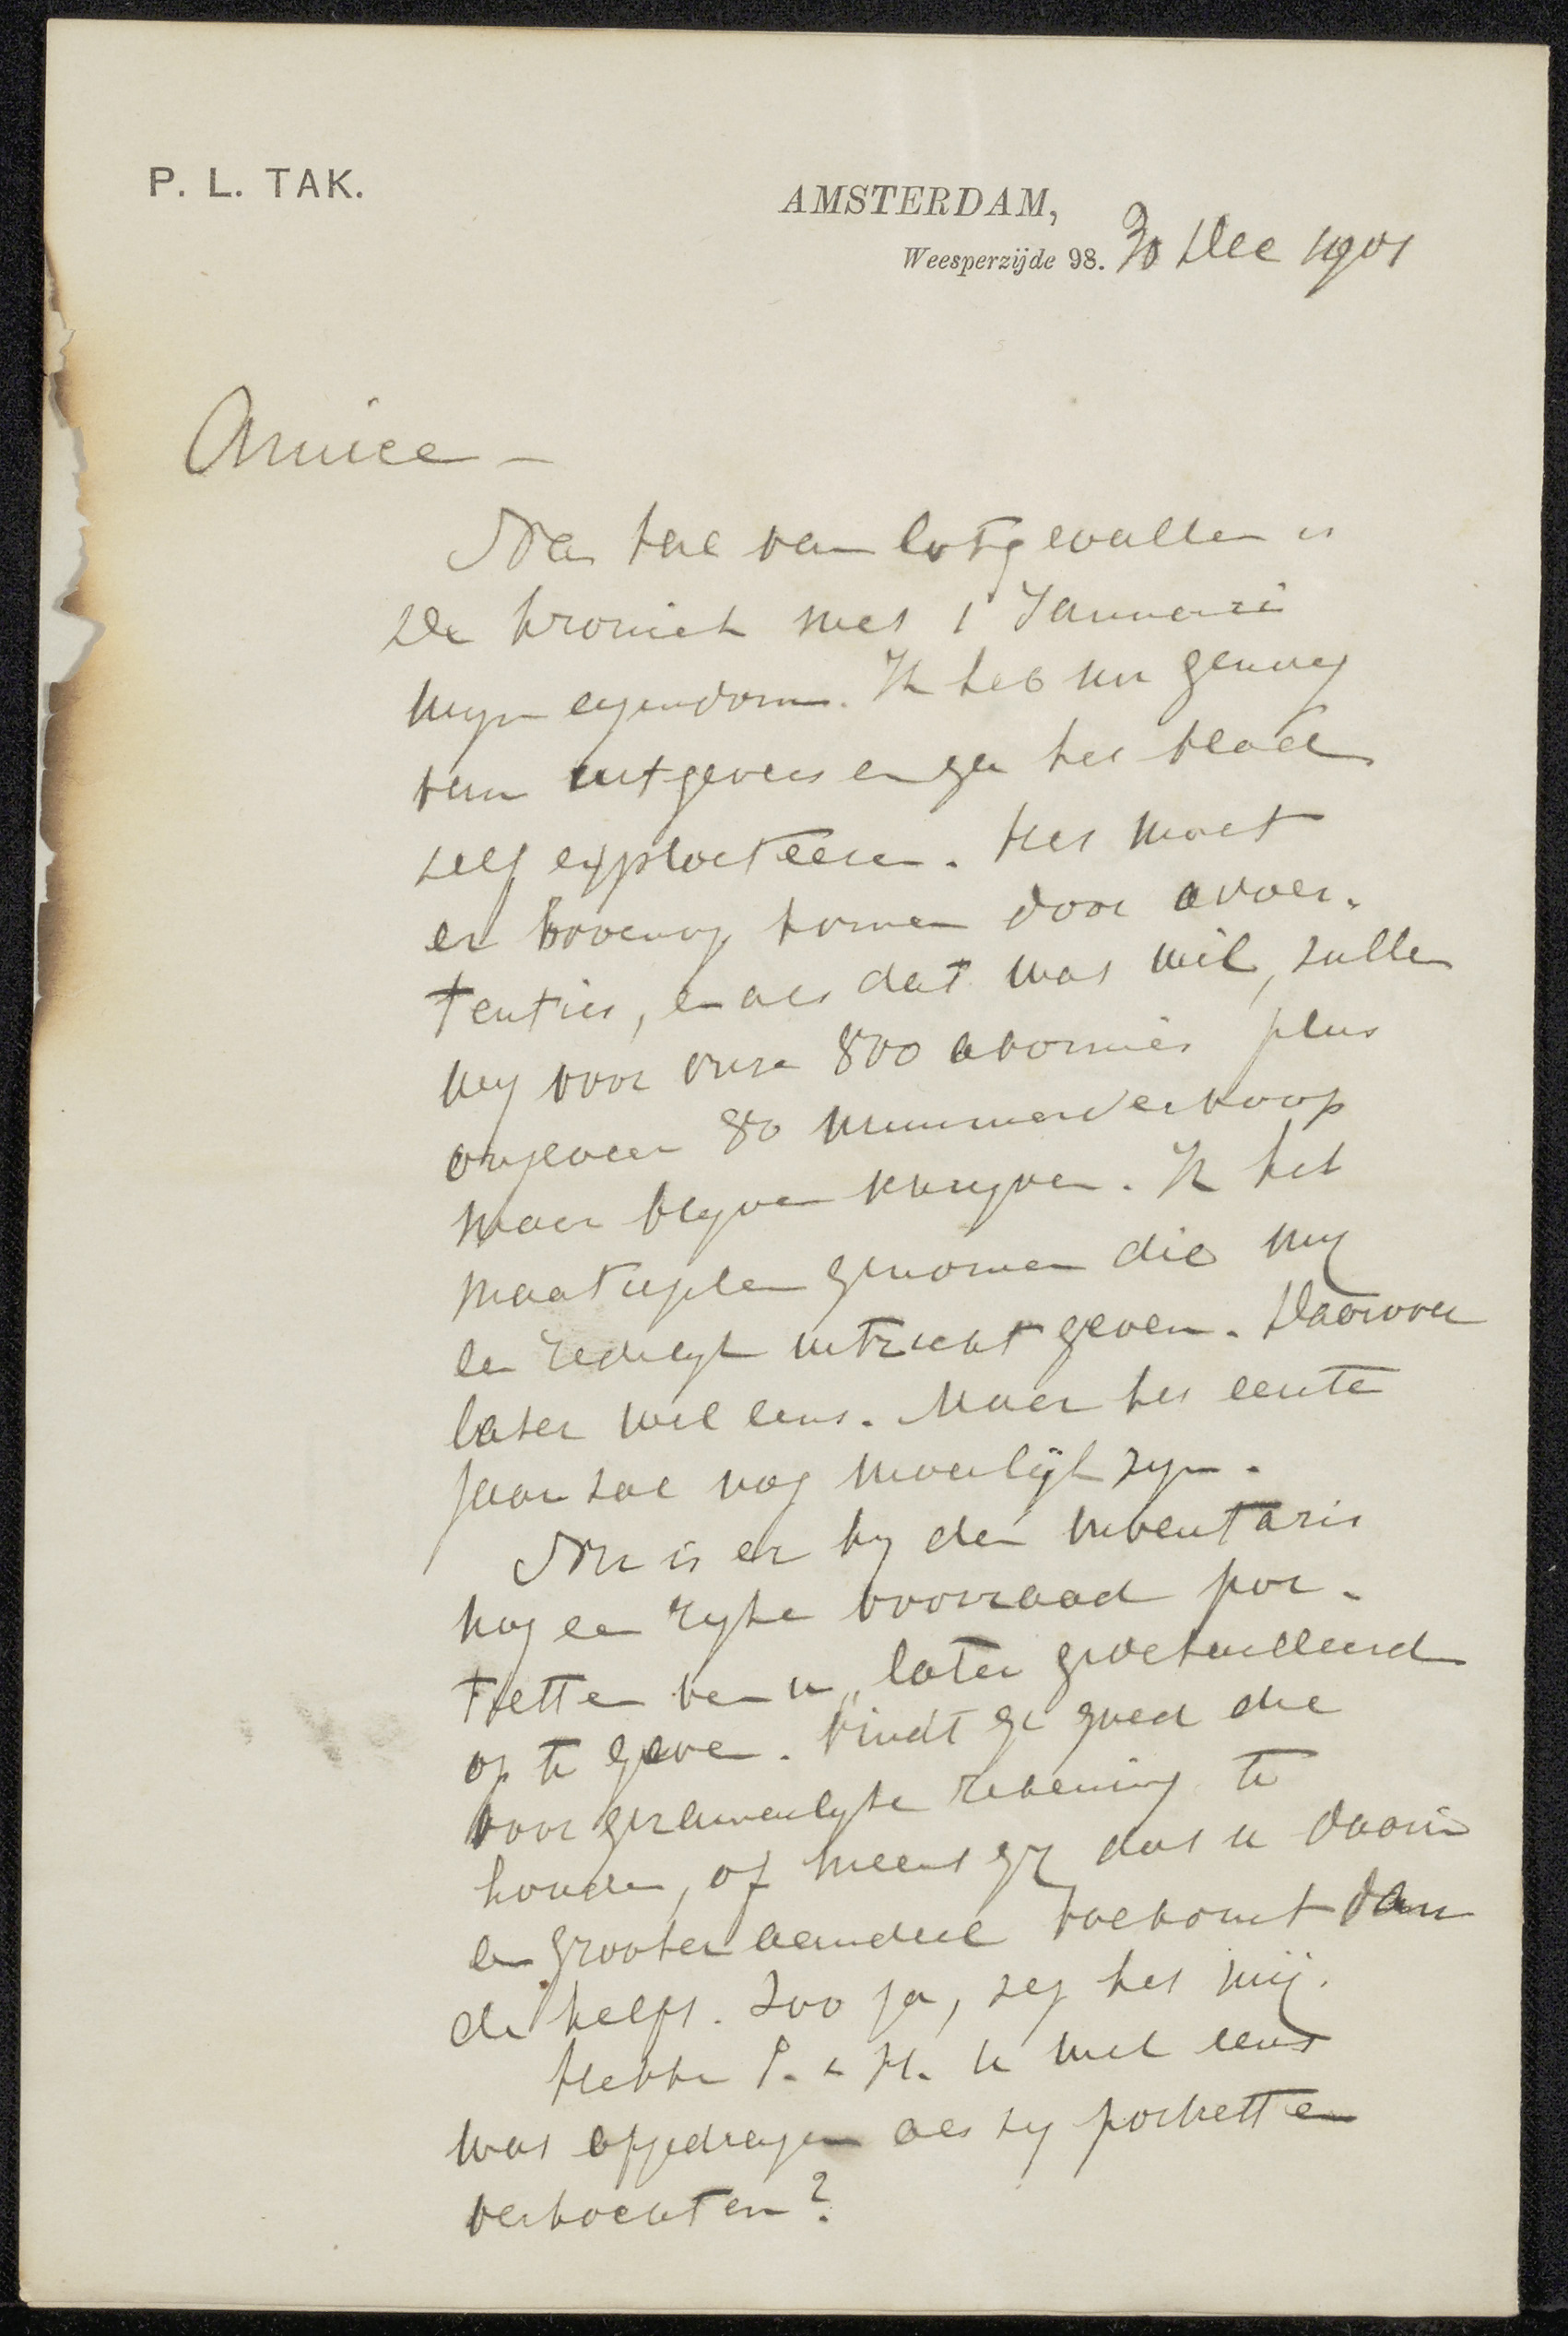 P. L. TAK.
AMSTERDAM,
Weesperzijde 98. 30 Dec 1901
Amice —
Na tal van lotgevallen is
De Kroniek met 1 Januari
mijn eigendom. Ik heb nu genoeg
van uitgevers en ga het blad
zelf exploiteeren. Het moet
er bovenop komen door adver-
tenties, en als dat was wil, zullen
wij voor onze 800 abonnés plus
ongeveer 80 nummerverkoop
maar blijven kruipen. Ik heb
maatregelen genomen die mij
een redelijk uitzicht geven. Daarover
later wel eens. Maar het eerste
jaar zal nog moeilijk zijn.
Nu is er bij den inventaris
nog een rijke voorraad por-
tretten van u, later
op te geven. Vindt ge goed die
voor gezamenlijke rekening te
houden, of meent gij dat u daarin
een grooter aandeel toekomt dan
de helft. Zoo ja, zeg het mij.
Hebben P. & H. u wel eens
wat afgedragen als zij portretten
verkochten?